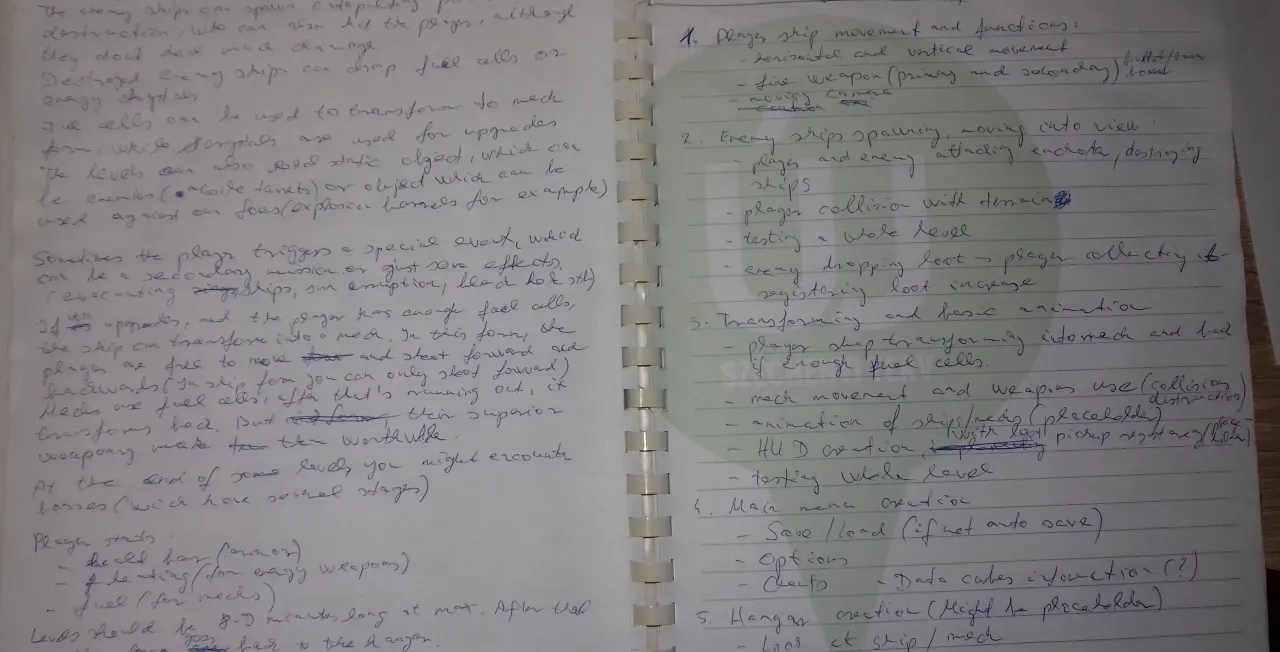 The enemy ships can spawn
destruction, who can also hit the player, although
they dont deal much damage.
Destroyed enemy ships can drop fuel cells or
energy crystals
Fuel cells can be used to transform to mech
form, while crystals are used for upgrades
The levels can also static object, which can
be enemies ( turrets) or object which can be
used against our foes (explosion barrels for example)
Sometimes the player triggers a special event, which
can be a secondary mission or just some effects.
(evacuating ships, sun eruption, )
If upgrades, and the player has enough fuel cells,
the ship can transform into a mech. In this form, the
player are free to move and shoot forward and
backwards (In ship form you can only shoot forward)
Mechs use fuel cells, after that's running out, it
transforms back. But their superior
weaponry make them worthwhile.
At the end of some levels you might encounter
bosses (wich have several stages)
Player stats:
- health bar (armor)
- heating (for energy weapons)
- fuel (for mechs)
Levels should be 8-9 minutes long at max. After that
back to the hangar.
1. Player ship movement and functions:
- horizontal and vertical movement
- fire weapon (primary and secondary)
- moving camera
2. Enemy ships spawning, moving into view:
- player and enemy attacking eachother, destroying
ships
- player collision with terrain
- testing a whole level
- enemy dropping loot → player collecting it
registering loot increase
3. Transforming and basic animation
- player ship transforming into mech and back
if enough fuel cells.
- mech movement and weapons use (collision,
destruction)
- animation of ships/mechs (placeholder)
- HUD creation, with loot pickup registering (place-
holder)
- testing whole level
4. Main menu creation
- Save/load (if not auto save)
- Options
- Cheats - Data cubes information (?)
5. Hangar creation (Might be placeholder)
- Look at ship/mech